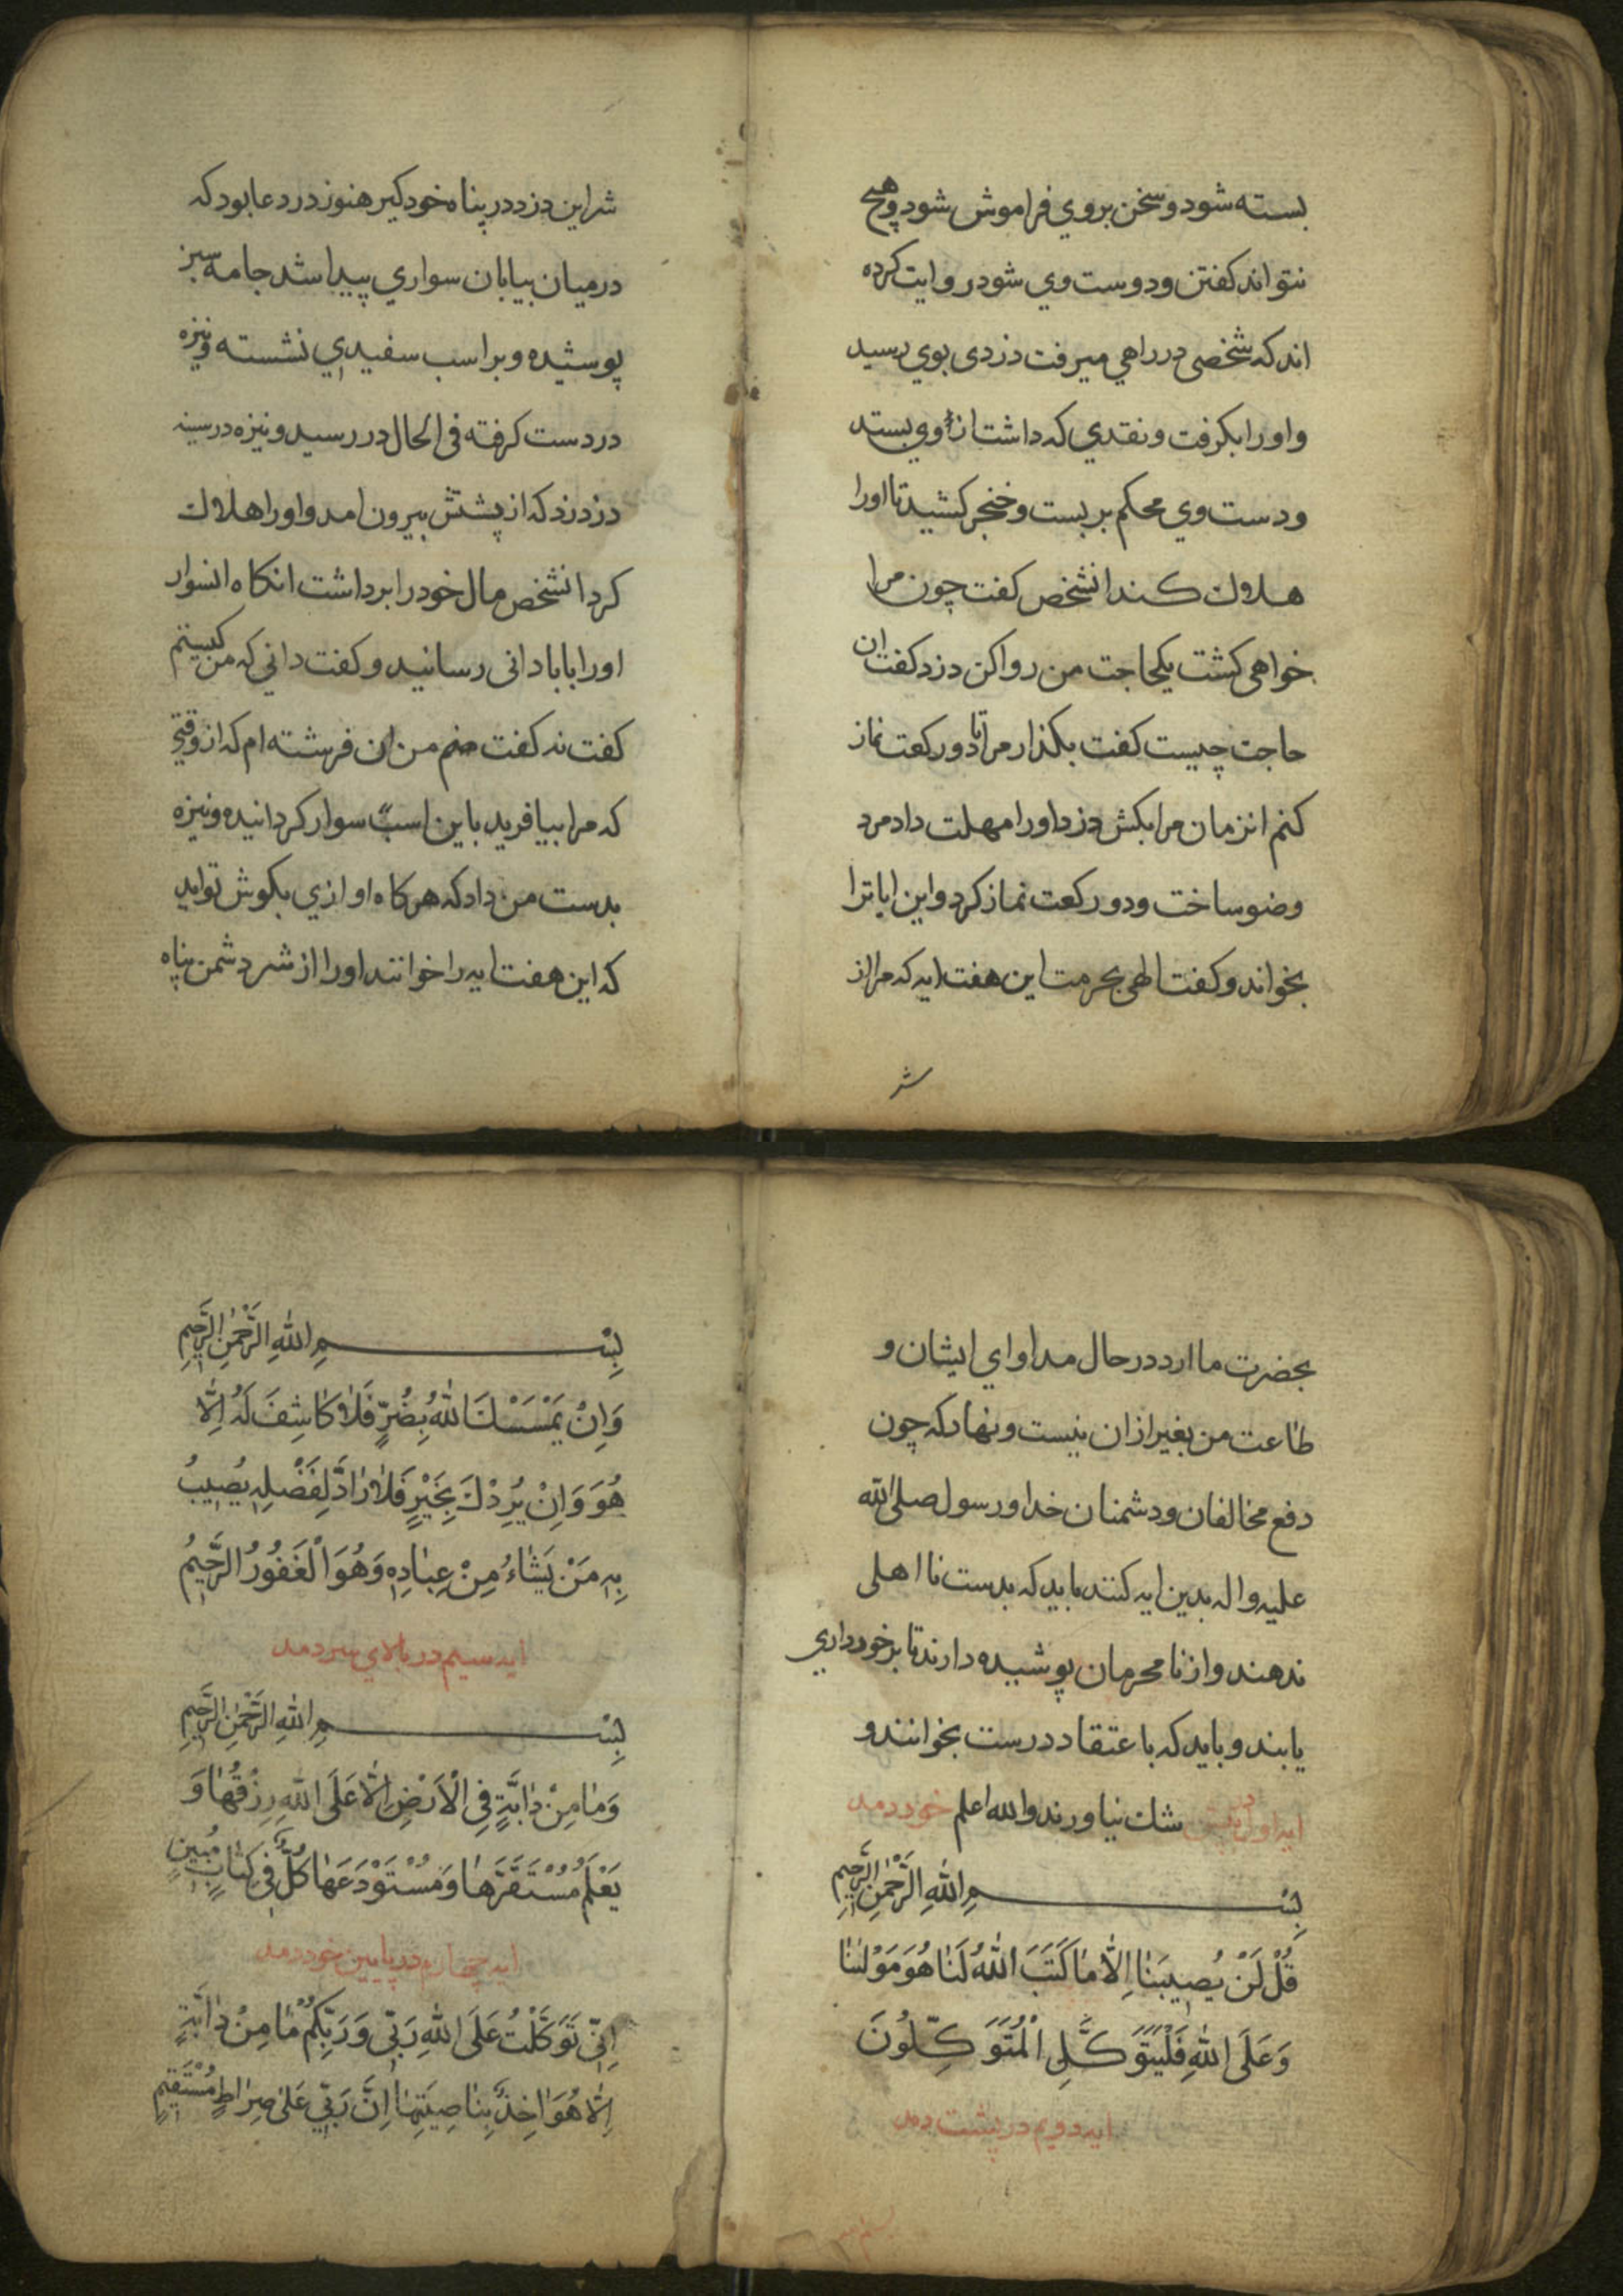 بسته شود و سخن بروي فراموش شود و هيچ
نتواند كفتن و دوست وي شود روايت كرده
اند كه شخصى در راهي ميرفت دزدى بوي رسيد
و او را بكرفت و نقدي كه داشت از وي بستد
و دست وي محكم بر بست و خنجر كشيد تا اورا
هلاك كند انشخص كفت چون مرا
خواهى كشت يكحاجت من روا كن دزد كفت ان
حاجت چيست كفت بكذار مرا تا دو ركعت نماز
كنم انزمان مرا بكش دزد اورا مهلت داد مرد
وضو ساخت و دو ركعت نماز كرد و اين اياترا
بخواند و كفت الهى بحرمت اين هفت ايه كه مرا از
شر
شر اين دزد در پناه خود كير هنوز در دعا بود كه
در ميان بيابان سواري پيدا شد جامه سبز
پوشيده و بر اسب سفيدي نشسته و نيزه
در دست كرفته فى الحال در رسيد و نيزه در سينه
دزد زد كه از پشتش بيرون امد و اورا هلاك
كرد انشخص مال خود را برداشت انكاه انسوار
اورا بابادانى رسانيد و كفت داني كه من كيستم
كفت نه كفت منم من ان فرشته ام كه از وقتي
كه مرا بيافريد باين اسب سوار كردانيده و نيزه
بدست من داد كه هر كاه اوازي بكوش تو ايد
كه اين هفت ايه را خوانند اورا از شر دشمن پناه
بحضرت ما ارد در حال مداواي ايشان و
طاعت من بغير از ان نيست و نهاد كه چون
دفع مخالفان و دشمنان خدا و رسول صلى الله
عليه واله بدين ايه كنند بايد كه بدست نا اهلى
ندهند و از نا محرمان پوشيده دارند تا برخورداري
يابند و بايد كه با عتقاد درست بخوانند و
شك نياورند والله اعلم ايه اول در پيش خود دمد
بِسْمِ اللهِ الرَّحْمٰنِ الرَّحِيمِ
قُلْ لَنْ يُصِيبَنٰا اِلّٰا مٰا كَتَبَ اللهُ لَنٰا هُوَ مَوْلٰينٰا
وَعَلَى اللهِ فَلْيَتَوَكَّلِ الْمُتَوَكِّلُونَ
ايه دويم در پشت دمد
بِسْمِ اللهِ الرَّحْمٰنِ الرَّحِيمِ
وَاِنْ يَمْسَسْكَ اللهُ بِضُرٍّ فَلٰا كٰاشِفَ لَهُ اِلّٰا
هُوَ وَاِنْ يُرِدْكَ بِخَيْرٍ فَلٰا رٰادَّ لِفَضْلِهِ يُصِيبُ
بِهِ مَنْ يَشٰاءُ مِنْ عِبٰادِهِ وَهُوَ الْغَفُورُ الرَّحِيمُ
ايه سيم در بالاي سر دمد
بِسْمِ اللهِ الرَّحْمٰنِ الرَّحِيمِ
وَمٰا مِنْ دٰابَّةٍ فِي الْاَرْضِ اِلّٰا عَلَى اللهِ رِزْقُهٰا وَ
يَعْلَمُ مُسْتَقَرَّهٰا وَمُسْتَوْدَعَهٰا كُلٌّ فِي كِتٰابٍ مُبِينٍ
ايه چهارم در پايين خود دمد
اِنِّي تَوَكَّلْتُ عَلَى اللهِ رَبِّي وَرَبِّكُمْ مٰا مِنْ دٰابَّةٍ
اِلّٰا هُوَ اٰخِذٌ بِنٰاصِيَتِهٰا اِنَّ رَبِّي عَلىٰ صِرٰاطٍ مُسْتَقِيمٍ